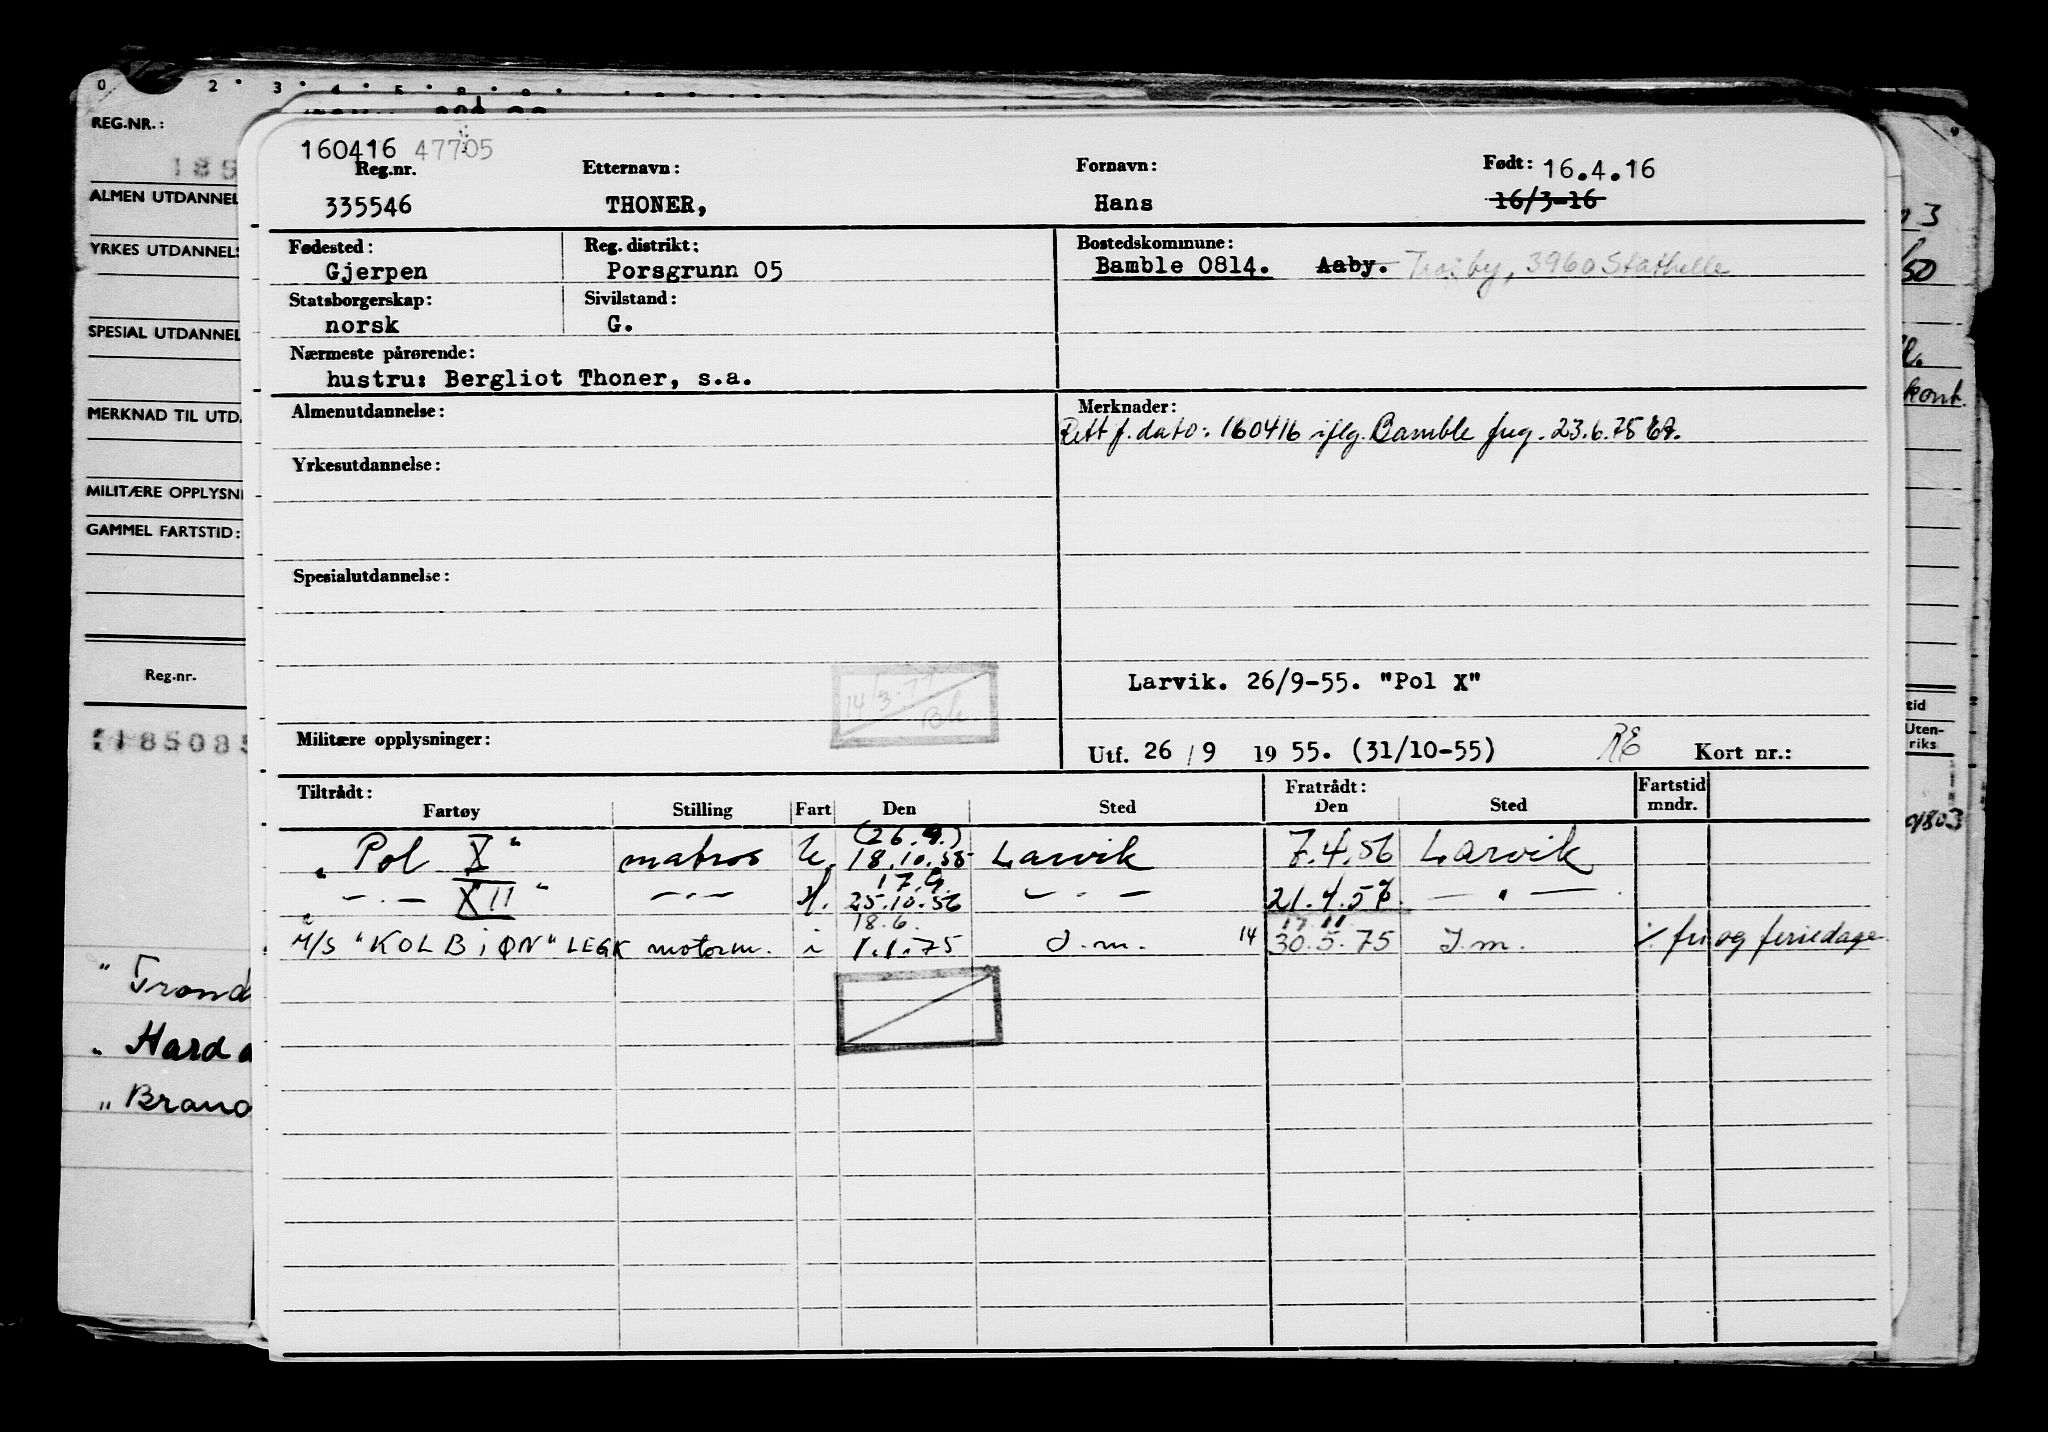 0 2 3 4 5
REG.NR.:
185
ALMEN UTDANNEL
YRKES UTDANNELS
SPESIAL UTDANNEL
MERKNAD TIL UTDA
MILITÆRE OPPLYSNI
GAMMEL FARTSTID:
Reg.nr.
185085
" Trond
" Hard a
" Brand
160416 47705
Reg.nr. Etternavn: Fornavn: Født: 16.4.16
335546 THONER, Hans 16/3-16
Fødested: Reg. distrikt: Bostedskommune:
Gjerpen Porsgrunn 05 Bamble 0814. Aaby. Trosby, 3960 Stathelle
Statsborgerskap: Sivilstand:
norsk G.
Nærmeste pårørende:
hustru: Bergliot Thoner, s.a.
Almenutdannelse: Merknader:
Rett f. dato: 160416 iflg. Bamble freg. 23.6.75
Yrkesutdannelse:
Spesialutdannelse:
14/3-77
Bk.
Larvik. 26/9-55. "Pol X"
Militære opplysninger: Utf. 26/9 1955. (31/10-55) RE Kort nr.:
Tiltrådt: Fratrådt: Fartstid
Fartøy Stilling Fart Den Sted Den Sted mndr.
(26.9.)
" Pol X " matros U. 18.10.55 Larvik 7.4.56 Larvik
17.9.
— . — XII " — . — H. 25.10.56 — . — 21.4.57 — " —
18.6. 17.11
M/S "KOLBiØN" LEGK motorm. i 1.1.75 I.m. 14 30.5.75 I.m. ٪ fri og feriedage
3
50
kont.
tid
Uten-
riks
9803